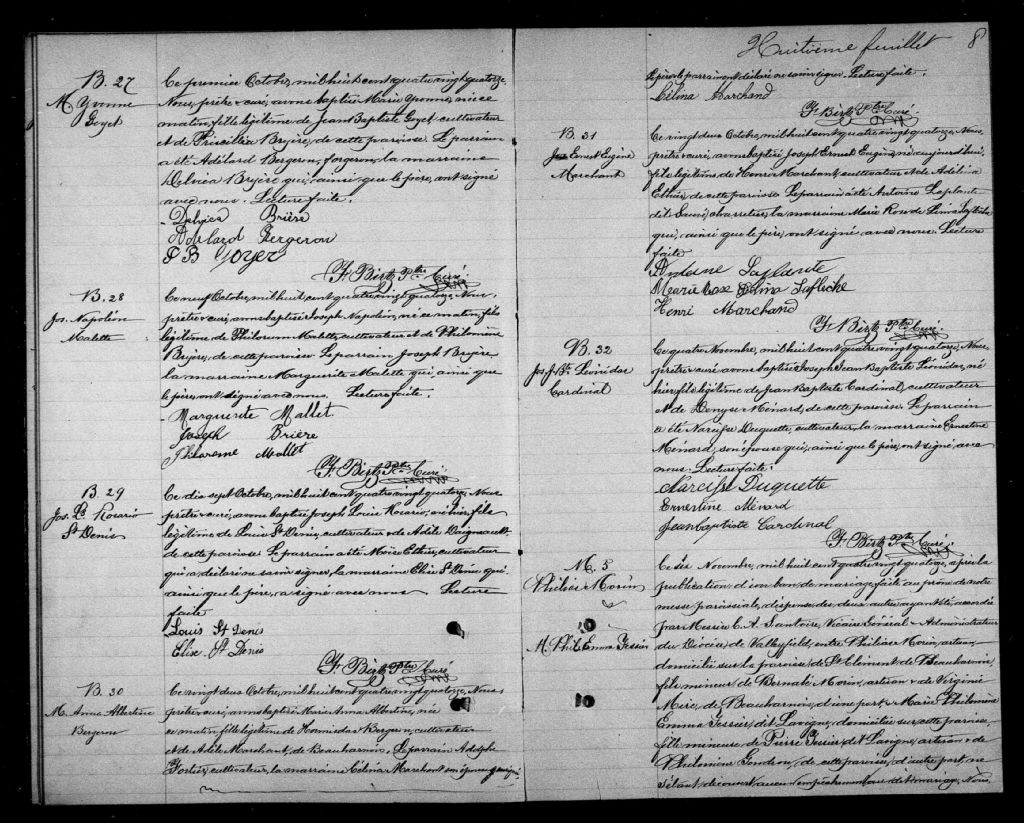 B. 27
M. Yvonne
Goyet
Ce premier Octobre, mil huit cent quatre vingt quatorze
Nous, prêtre curé, avons baptisé Marie Yvonne, née ce
matin, fille légitime de Jean Baptiste Goyet cultivateur
et de Priscilla Bryère, de cette paroisse. Le parrain
a été Adélard Bergeron, forgeron, la marraine
Delvica Bryère qui, ainsi que le père, ont signé
avec nous. Lecture faite.
- Delvica Brière
Adelard Bergeron
J B Goyer
B. 28
Jos. Napoléon
Malette
Ce neuf Octobre, mil huit cent, quatre vingt quatorze, Nous,
prêtre curé, avons baptisé Joseph Napoléon, né ce matin, fils
légitime de Philorum Malette, cultivateur et de Philomène
Bryère, de cette paroisse. Le parrain Joseph Bryère
la marraine Marguerite Malette qui, ainsi que
le père, ont signé avec nous. Lecture faite.
- Marguerite Mallet
Joseph Brière
Philoreme Mallet
B. 29
Jos. Ls Rosario
St Denis
Ce dix sept Octobre, mil huit cent quatre vingt quatorze, Nous
prêtre curé, avons baptisé Joseph Louis Rosario, né hier, fils
légitime de Louis St Denis, cultivateur & de Adèle Daigneault
de cette paroisse. Le parrain a été Moïse Ethier, cultivateur
qui a déclaré ne savoir signer, la marraine Elise St Denis qui
ainsi que le père, a signé avec nous. Lecture
faite
Louis St Denis
Elise St Denis
B. 30
M. Anna Albertine
Bergeron
Ce vingt deux Octobre, mil huit cent, quatre vingt quatorze, Nous
prêtre curé, avons baptisé Marie Anna Albertine, née
ce matin, fille légitime de Hormisdas Bergeron, cultivateur
et de Adèle Marchant, de Beauharnois. Le parrain Adolphe
Fortier, cultivateur, la marraine Célina Marchant son épouse
Huitième feuillet 8
le père & le parrain ont déclaré ne savoir signer. Lecture faite.
Célina Marchand
B. 31
Jos Ernest Eugène
Marchant
Ce vingt deux Octobre, mil huit cent quatre vingt quatorze, Nous
prêtre curé, avons baptisé Joseph Ernest Eugène, né aujourd'hui,
fils légitime de Henri Marchant, cultivateur et de Adélina
Ethier, de cette paroisse. Le parrain a été Antoine Laplante
dit charretier, la marraine Marie Rose de Lima Laflèche
qui, ainsi que le père, ont signé avec nous. Lecture
faite
Antoine Laplante
Marie Rose Délima Lafleche
Henri Marchand
B. 32
Jos. J. Bte Léonidas
Cardinal
Ce quatre Novembre, mil huit cent quatre vingt quatorze, Nous
prêtre curé, avons baptisé Joseph Jean Baptiste Léonidas, né
hier, fils légitime de Jean Baptiste Cardinal, cultivateur
et de Denyse Ménard, de cette paroisse. Le parrain
a été Narcisse Duquette, cultivateur, la marraine Ernestine
Ménard, son épouse qui, ainsi que le père, ont signé avec
nous. Lecture faite.
Narcisse Duquette
Ernestine Ménard
Jean baptiste Cardinal
M. 5
Philias Morin
&
M. Phil. Emma Tessier
Ce six Novembre, mil huit cent quatre vingt quatorze, après la
publication d'un ban de mariage faite au prône de notre
messe paroissiale, dispense des deux autres ayant été accordée
par Messire C. A. Santoire, Vicaire Général & Administrateur
du Diocèse de Valleyfield, entre Philias Morin, artisan,
domicilié sur la paroisse de St Clément de Beauharnois,
fils mineur de Bernabé Morin, artisan & de Virginie
de Beauharnois, d'une part & Marie Philomène
Emma Tessier, dit Lavigne, domiciliée sur cette paroisse,
fille mineure de Pierre Tessier dit Lavigne, artisan & de
Philomène Gendron, de cette paroisse, d'autre part, ne
s'étant découvert aucun empêchement au dit mariage, Nous,